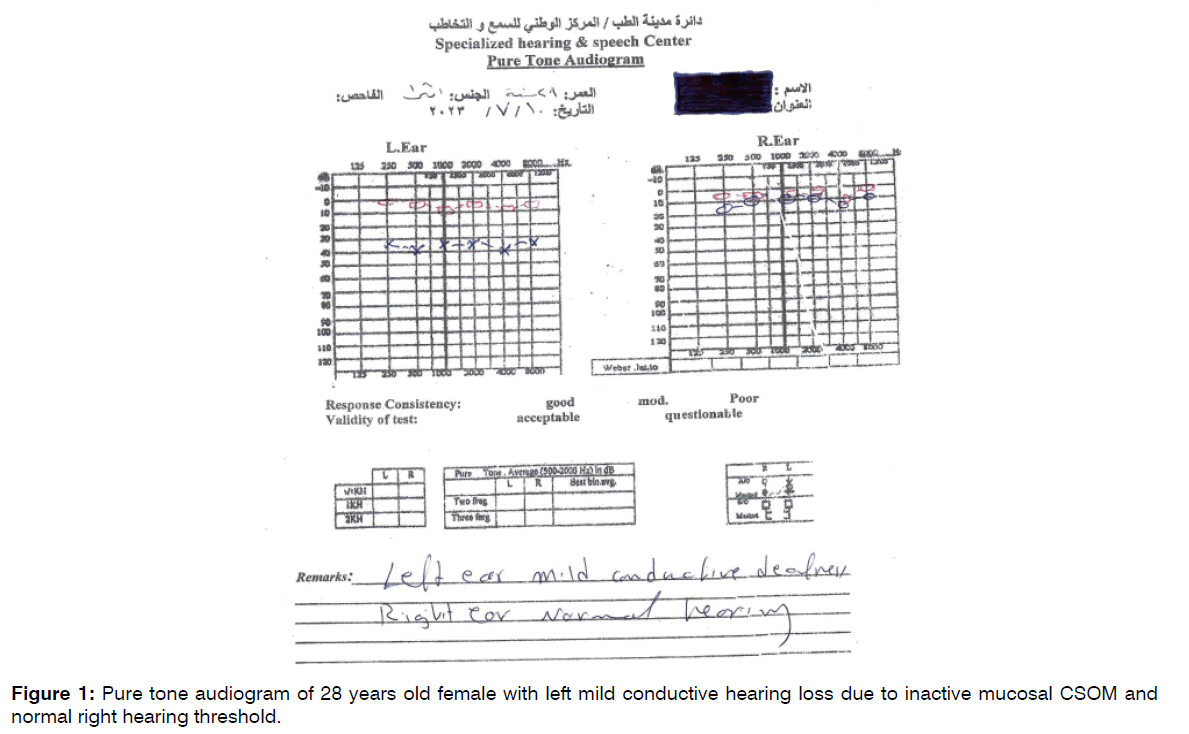 دائرة مدينة الطب / المركز الوطني للسمع و التخاطب
Specialized hearing & speech Center
Pure Tone Audiogram
الاسم :
العمر: ٢٨ سنة الجنس: انثى الفاحص:
العنوان:
التاريخ: ١٠ / ٧ / ٢٠٢٣
L.Ear
R.Ear
125 250 500 1000 2000 4000 8000 Hz.
125 250 500 1000 2000 4000
-10
0
10
20
30
40
50
60
70
80
90
100
110
120
-10
0
10
20
30
40
50
70
80
90
100
110
120
125 250 500 1000 2000 4000 8000
125 250 500 1000 2000 4000 8000
Weber .lat.to
Response Consistency: good mod. Poor
Validity of test: acceptable questionable
L R
1KH
2KH
Pure Tone . Average (500-2000 Hz) in dB
L R Best bin.avg.
Two freq
Three
R L
Remarks: Left ear mild conductive deafness
Right ear Normal hearing
Figure 1: Pure tone audiogram of 28 years old female with left mild conductive hearing loss due to inactive mucosal CSOM and
normal right hearing threshold.